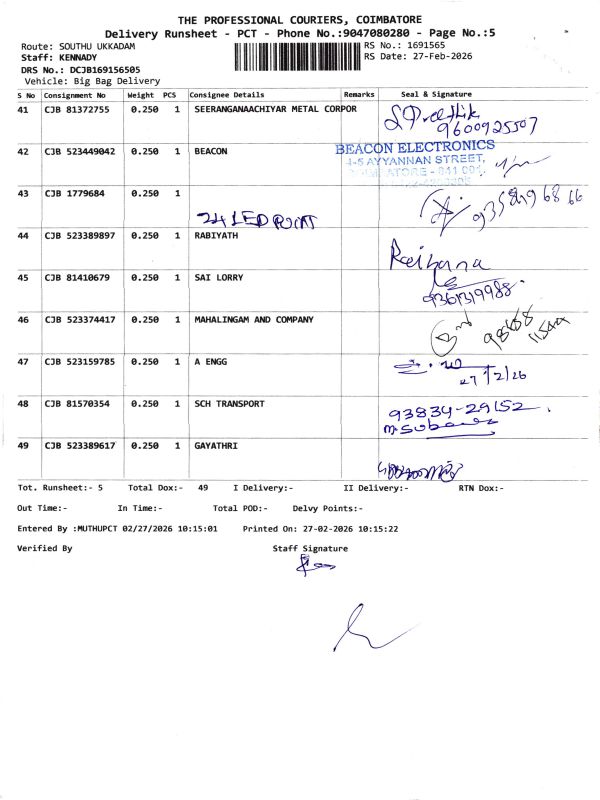 THE PROFESSIONAL COURIERS, COIMBATORE
Delivery Runsheet - PCT - Phone No.:9047080280 - Page No.:5
Route: SOUTHU UKKADAM
RS No.: 1691565
Staff: KENNADY
RS Date: 27-Feb-2026
DRS No.: DCJB169156505
Vehicle: Big Bag Delivery
S No Consignment No Weight PCS Consignee Details Remarks Seal & Signature
41 CJB 81372755 0.250 1 SEERANGANAACHIYAR METAL CORPOR
9600925507
42 CJB 523449042 0.250 1 BEACON
BEACON ELECTRONICS
4-5 AYYANNAN STREET,
43 CJB 1779684 0.250 1
24 LED POINT
44 CJB 523389897 0.250 1 RABIYATH
Raihana
45 CJB 81410679 0.250 1 SAI LORRY
9361319988
46 CJB 523374417 0.250 1 MAHALINGAM AND COMPANY
47 CJB 523159785 0.250 1 A ENGG
27/2/26
48 CJB 81570354 0.250 1 SCH TRANSPORT
93834-29152
49 CJB 523389617 0.250 1 GAYATHRI
Tot. Runsheet:- 5 Total Dox:- 49 I Delivery:- II Delivery:- RTN Dox:-
Out Time:- In Time:- Total POD:- Delvy Points:-
Entered By :MUTHUPCT 02/27/2026 10:15:01 Printed On: 27-02-2026 10:15:22
Verified By Staff Signature